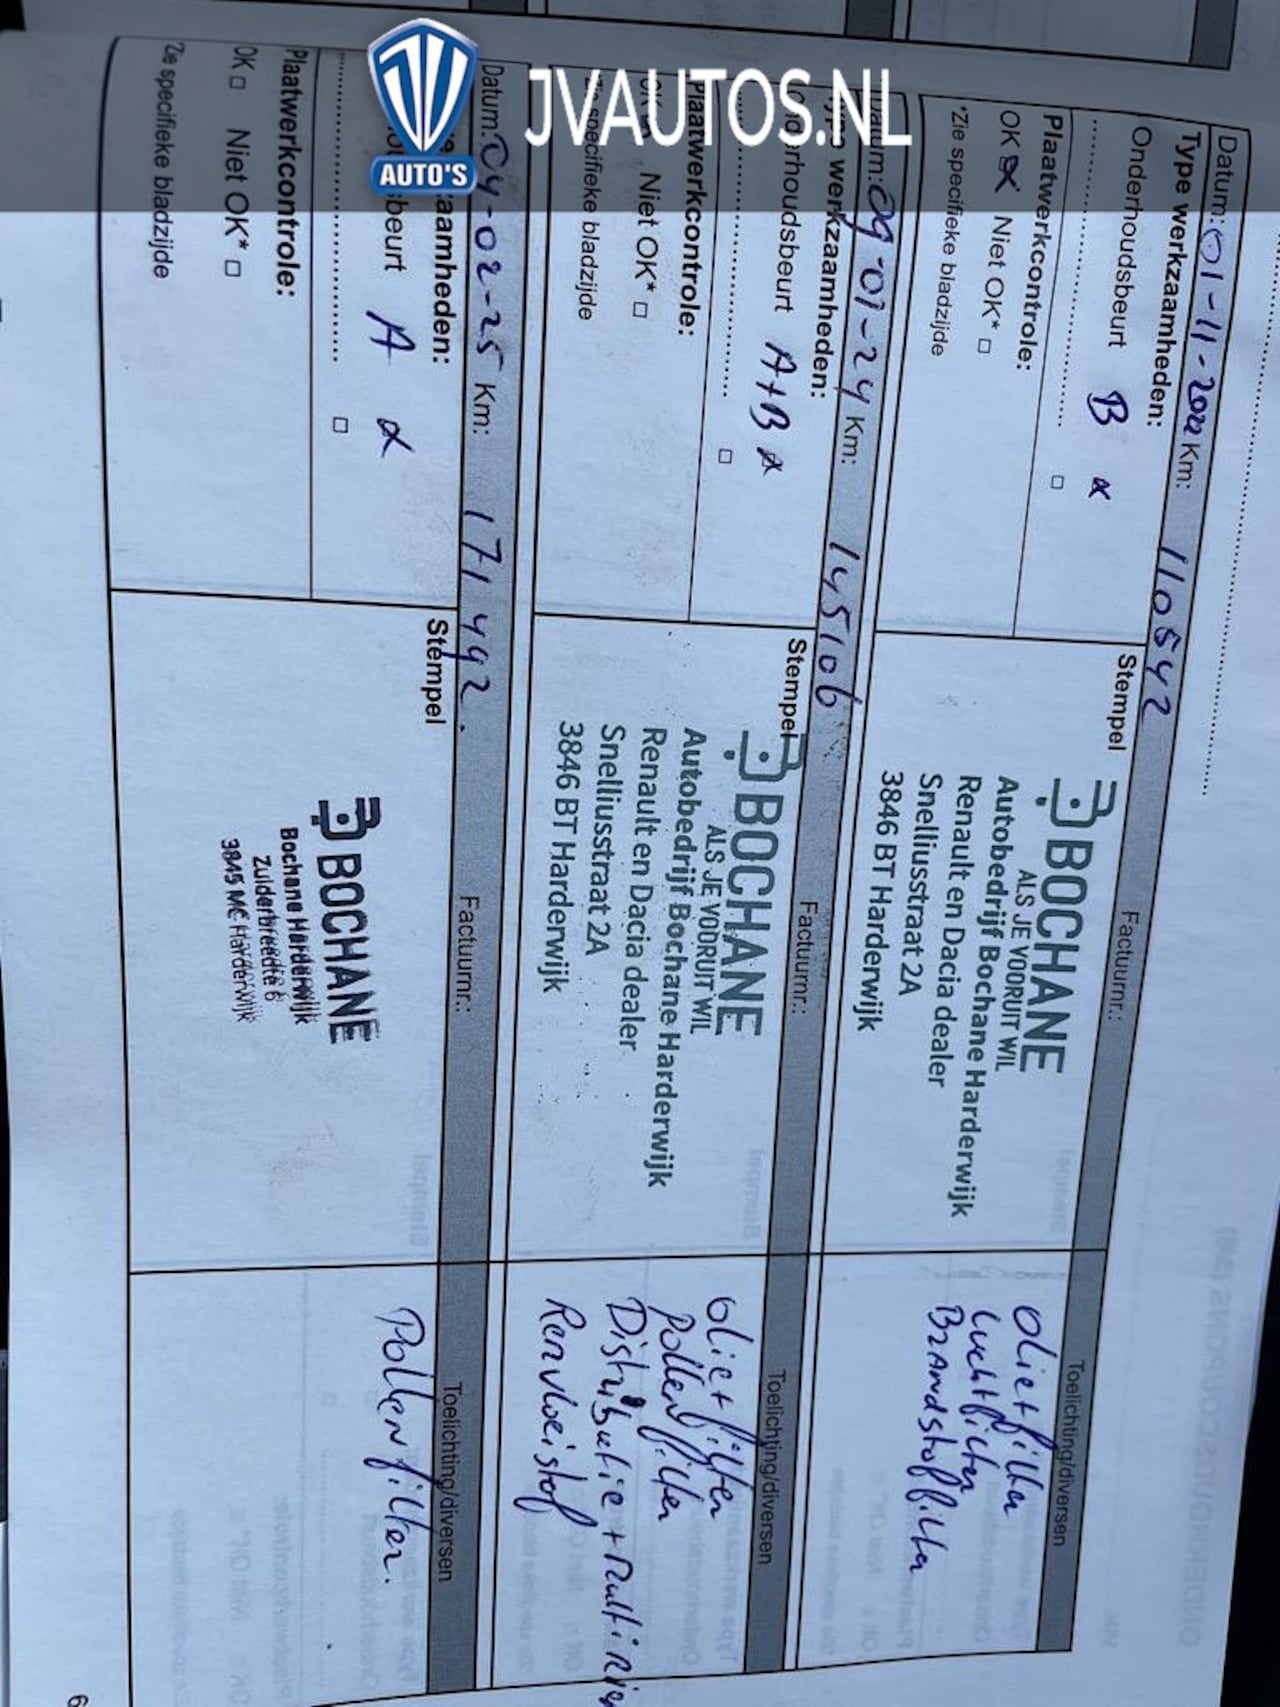 JVAUTOS.NL
AUTO'S
Datum: 01-11-2022 Km: 110542 Factuurnr.: Toelichting/diversen
Type werkzaamheden:
Onderhoudsbeurt B
Plaatwerkcontrole:
OK Niet OK* □
*Zie specifieke bladzijde
Stempel
BOCHANE
ALS JE VOORUIT WIL
Autobedrijf Bochane Harderwijk
Renault en Dacia dealer
Snelliusstraat 2A
3846 BT Harderwijk
Olie+filter
Luchtfilter
Brandstoffilter
Datum: 09-01-24 Km: 145106 Factuurnr.: Toelichting/diversen
Type werkzaamheden:
Onderhoudsbeurt A+B
Plaatwerkcontrole:
Niet OK* □
Zie specifieke bladzijde
Stempel
BOCHANE
ALS JE VOORUIT WIL
Autobedrijf Bochane Harderwijk
Renault en Dacia dealer
Snelliusstraat 2A
3846 BT Harderwijk
Olie+filter
Pollenfilter
Distributie + Multi
Remvloeistof
Datum: 04-02-25 Km: 171492. Factuurnr.: Toelichting/diversen
zaamheden:
beurt A
Plaatwerkcontrole:
OK □ Niet OK* □
*Zie specifieke bladzijde
Stempel
BOCHANE
Bochane Harderwijk
Zuiderbreedte 6
3845 MC Harderwijk
Pollenfilter.
6